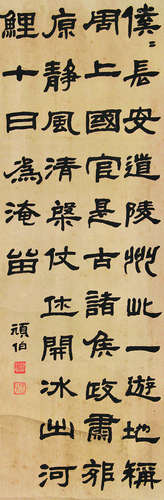 僕〻長安道陵州此一遊地稱
周上國官是古諸侯政肅郊
原靜風清棨仗休開冰出河
鯉十日為淹留
頑伯